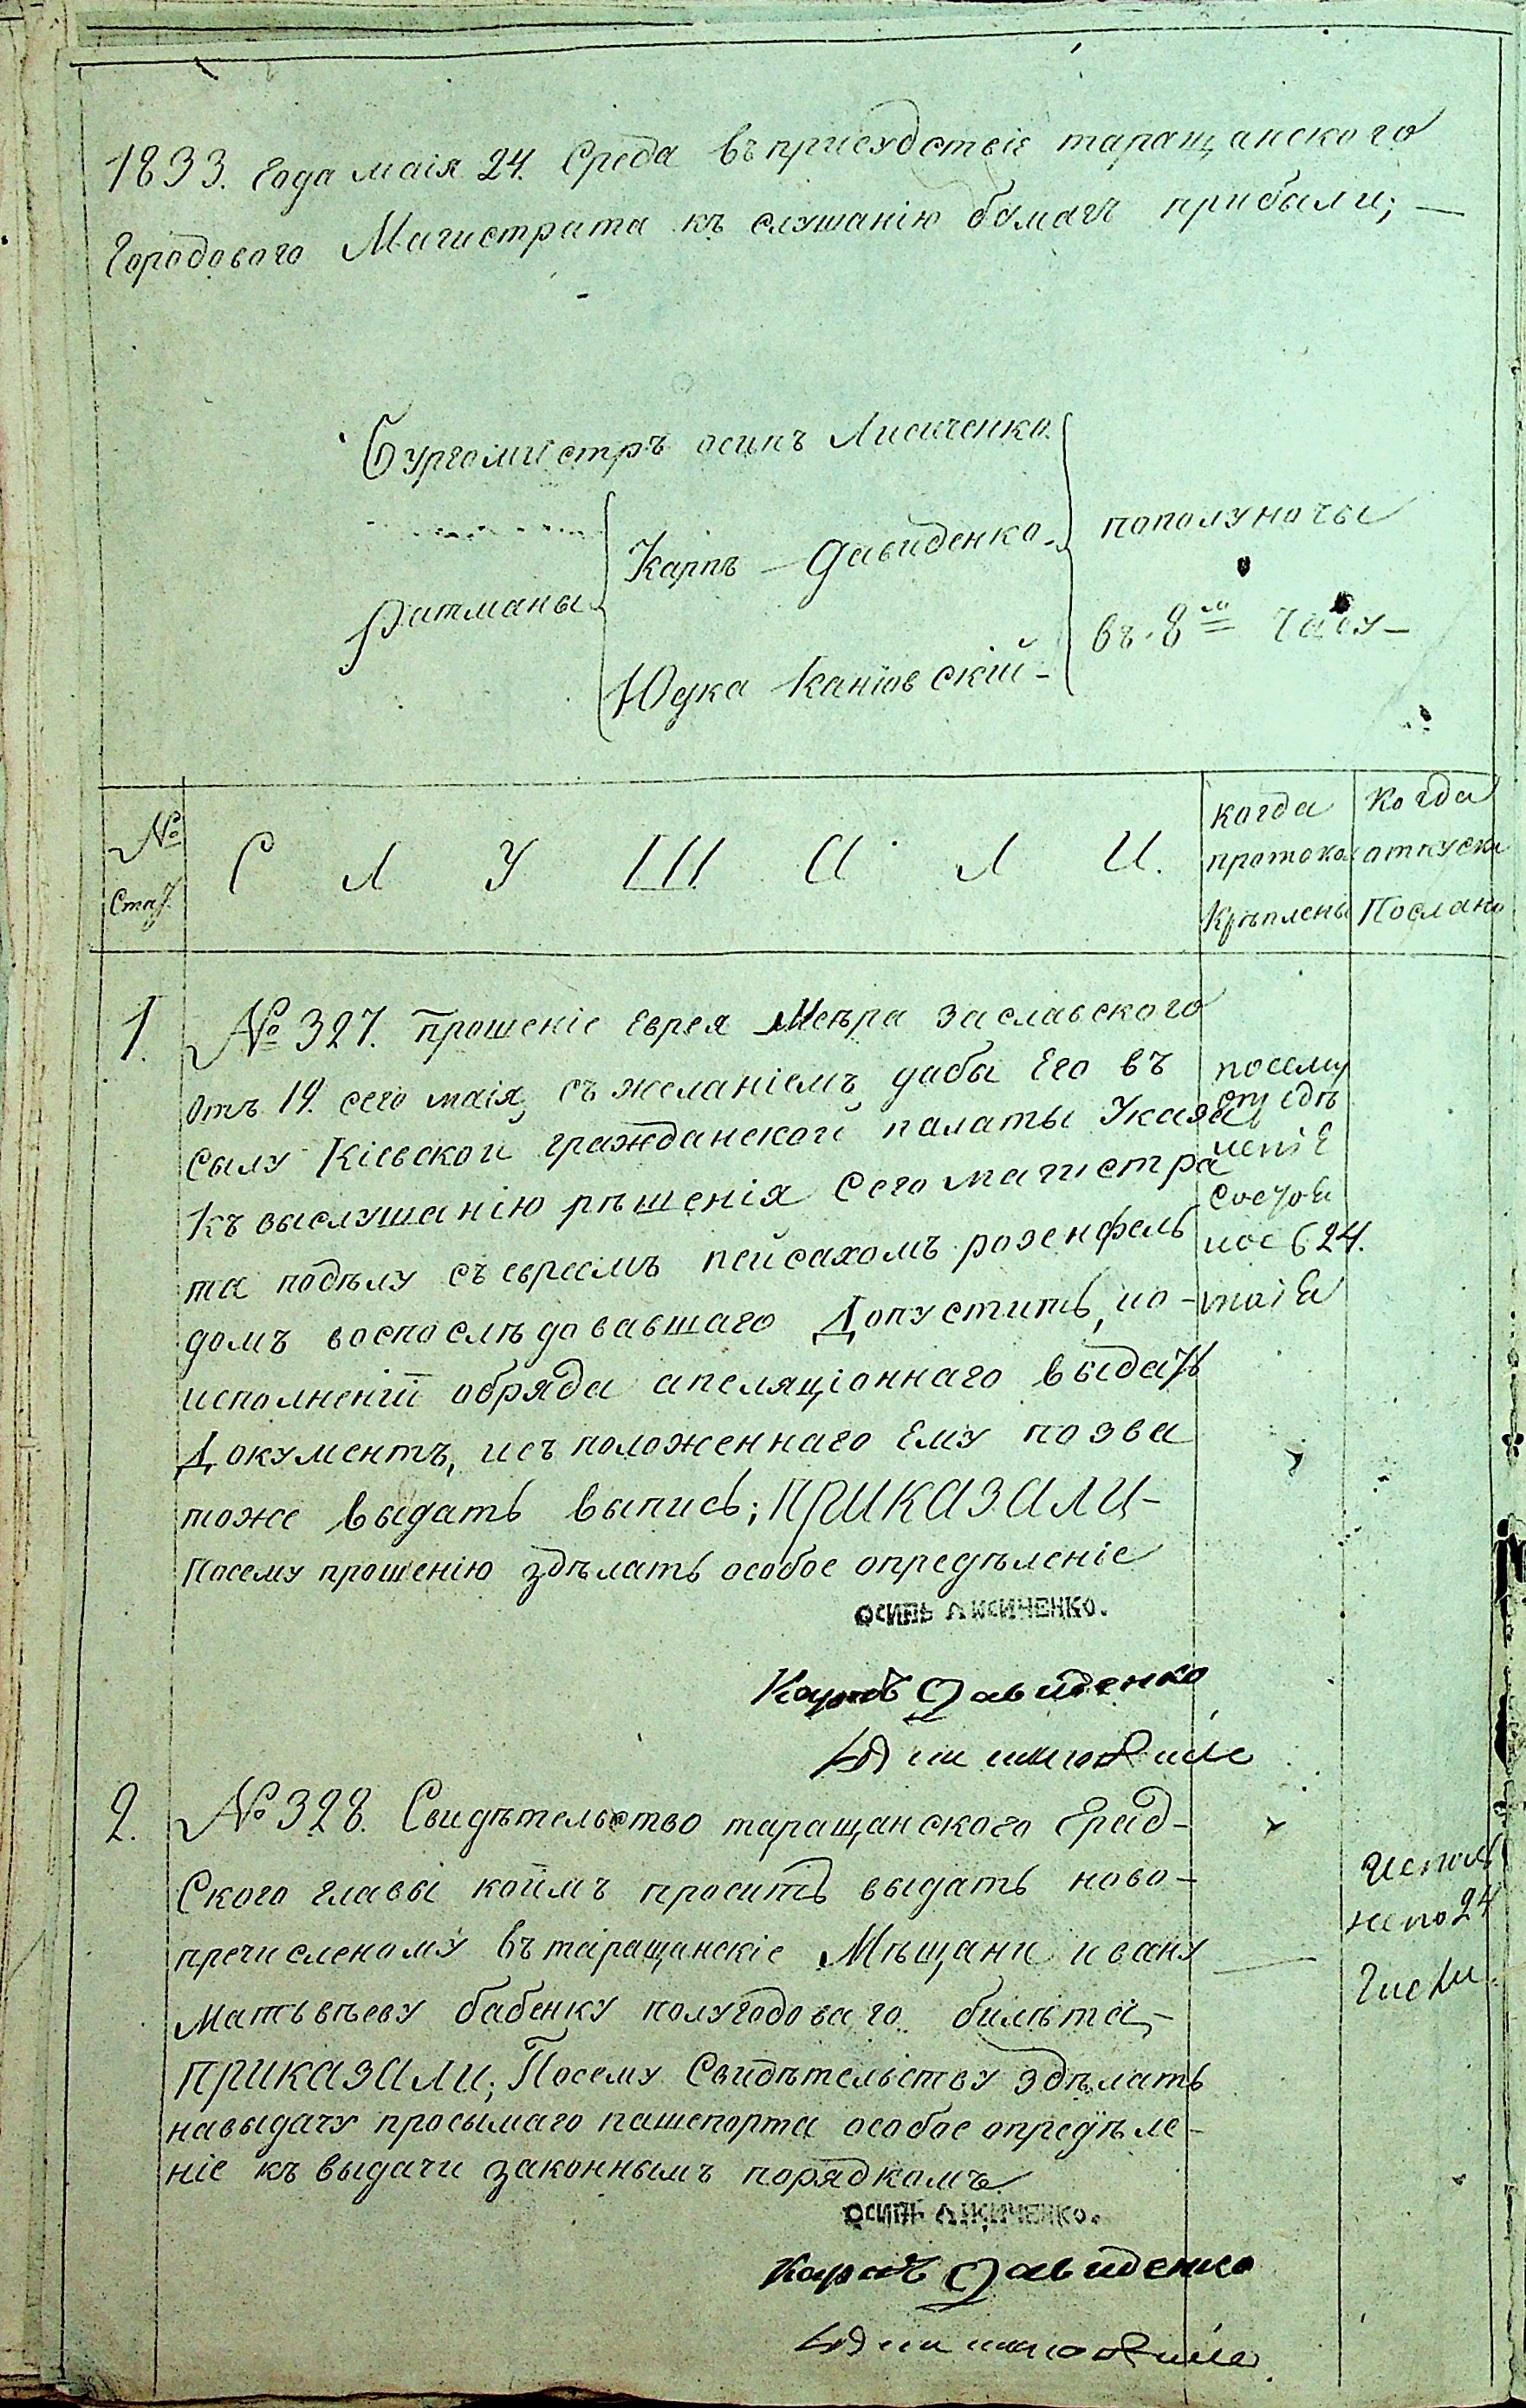 1833. Года маія 24. Среда въ присудствіе таращанского
Городового Магистрата къ слушанію бумагъ прибыли; —
Бургомистръ осипъ Лисиченко.
Ратманы
Карпъ — Давиденко.
Юдка Каніовскій —
пополуночы
въ 8м Часу —
№
Стат.
С Л У Ш А Л И.
когда
протокол
Крѣплены
Когда
отпуски
Послано
1. № 327. Прошеніе Еврея Меѣра Заславского
отъ 19. сего маія, съ желаніемъ дабы Его въ
силу Кіевской гражданской палаты Указа
къ выслушанію рѣшенія Сего магистра
та подѣлу съ евреемъ пейсахомъ розенфель
домъ воспослѣдовавшаго Допустить, по —
исполненіи обряда апеляціоннаго выдать
Документъ, исъ положеннаго Ему позва
тоже выдать выпись; ПРИКАЗАЛИ —
Посему прошенію здѣлать особое опредѣленіе
посему
опредѣ
леніе
состоя
лос 624.
маія
ОСИПЬ ЛИСИЧЕНКО.
Карпъ Давиденко
2. № 328. Свидѣтельство таращанского Град-
Ского главы коимъ проситъ выдать ново-
пречисленому въ таращанскіе Мѣщани ивану
Матьвѣеву бабенку полугодоваго билѣта, —
ПРИКАЗАЛИ; Посему Свидѣтельству здѣлать
навыдачу просымаго пашепорта особое опредѣле-
ніе къ выдачи законнымъ порядкомъ.
Испол
нено 24
Числа.
ОСИПЬ ЛИСИЧЕНКО.
Карпъ Давиденко